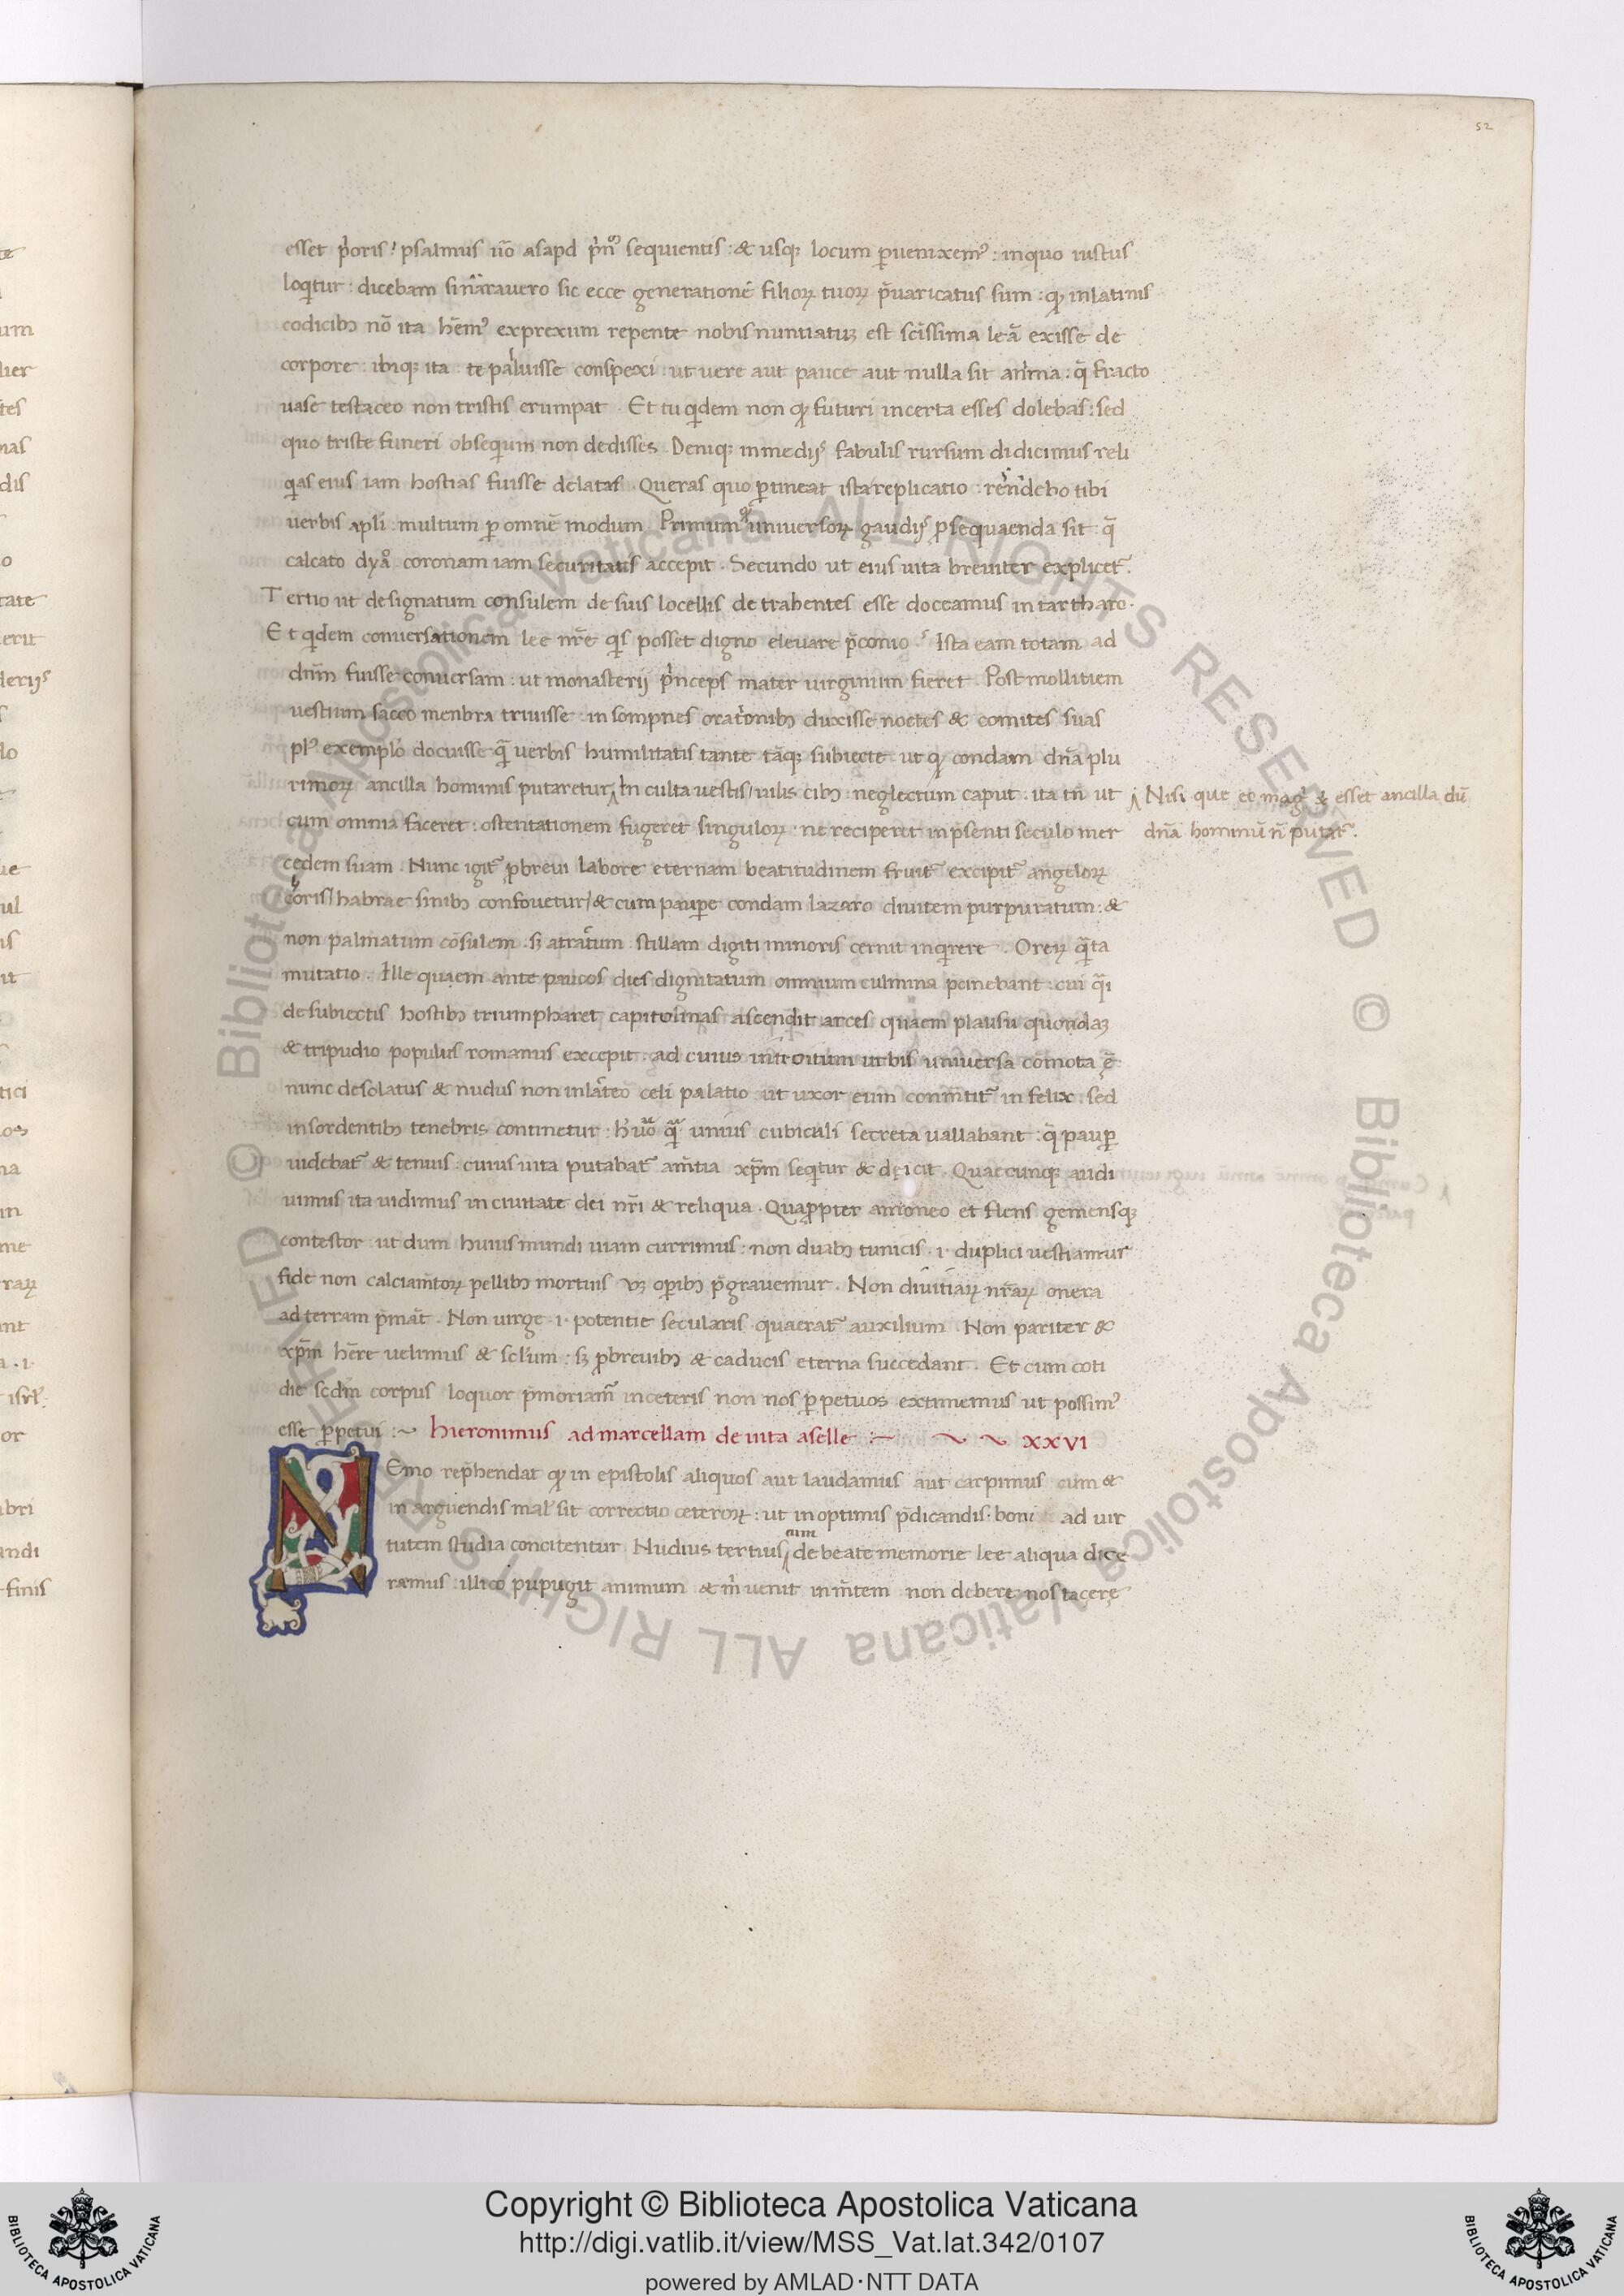 52
esset p͛oris / psalmus ũo asapd p͛nᵒ sequientis : & usqꝫ locum ꝑueni&#120;emꝰ : in quo iustus
loqͥtur : dicebam si nãrauero sic ecce generationẽ filioꝝ tuoꝝ p̃uaricatus sum : qꝫ in latinis
codicibꝫ nõ ita hẽmꝰ exprexum repente nobis nuntiatuꝫ est sc̃issima leã exisse de
corpore : ibiqꝫ ita te palluisse conspexi : ut uere aut pauce aut nulla sit anĩma : q̃ fracto
uase testaceo non tristis erumpat . Et tu qͥdem non qꝫ futuri incerta esses dolebas : sed
quo triste funeri obseqͥum non dedisses . Deniqꝫ in medijs fabulis rursum didicimus reli
qͥas eius iam hostias fuisse delatas . Queras quo ꝑtineat ista replicatio : respõdebo tibi
uerbis apl̃i . multum ꝑ omnẽ modum . Primum universoꝝ gaudijs ꝓsequaenda sit q̃
calcato dyã coronam iam securitatis accepit . Secundo ut eius uita breuiter explicet᷑ .
Tertio ut designatum consulem de suis locellis detrahentes esse doceamus in tartharo .
Et qͥdem conuersationem lee nr̃e qͥs posset digno eleuare p̃conio ? Ista eam totam ad
dñm fuisse conuersam : ut monasterij pͥnceps mater uirginum fieret . Post mollitiem
uestium sacco menbra triuisse : in sompnes orationibꝫ duxisse noctes & comites suas
plꝰ exemplo docuisse qᷓ uerbis humilitatis tante tãqꝫ subiecte ut qꝫ condam dñã plu
rimoꝝ ancilla hominis putaretur / In culta uestis / uilis cibꝫ : neglectum caput : ita tñ ut
Nisi que et mag̃ & esset ancilla dũ
cum omnia faceret : ostentationem fugeret singuloꝝ : ne reciperet in p̃senti seculo mer
dñã hominũ ñ putat᷑ .
cedem suam . Nunc igit᷑ ꝓ breui labore eternam beatitudinem fruit᷑ excipit᷑ angeloꝝ
choris / habrae sinibꝫ confouetur / & cum pauꝑe condam lazaro diuitem purpuratum : &
non palmatum cõsulem . sꝫ atratum stillam digiti minoris cernit inqͥrere . O reꝝ qᷓta
mutatio . Ille quaem ante paucos dies dignitatum omnium culmina penebant : cui qᷓi
de subiectis hostibꝫ triumpharet capitolinas ascendit arces quaem plausu quondaꝫ
& tripudio populus romanus excepit . ad cuius introitum urbis universa comota ẽ
nunc desolatus & nudus non in lacteo celi palatio ut uxor eum conm̃tit᷑ in felix . sed
in sordentibꝫ tenebris continetur . unius cubiculi secreta uallabant : q̃ pauꝑ
uidebat᷑ & tenuis : cuius uita putabat᷑ am̃tia xp̃m seqͥtur & dẹicit . Quaecunqꝫ audi
uimus ita uidimus in ciuitate dei nr̃i & reliqua . Quapropter amoneo et flens gemensqꝫ
contestor : ut dum huius mundi uiam currimus : non duabꝫ tunicis .i. duplici uestiamur
fide non calciam̃toꝝ pellibꝫ mortuis uꝫ oꝑibꝫ p̃grauemur . Non diuitiaꝝ nr̃aꝝ onera
ad terram p̃mãt . Non uirge .i. potentie secularis quaerat᷑ auxilium . Non pariter &
xp̃m hẽre uelimus & sclũm : sꝫ ꝓ breuibꝫ & caducis eterna succedant . Et cum coti
die scd̃m corpus loquor p̃moriam̃ in ceteris non nos ꝑpetuos extimemus ut possimꝰ
esse ꝑpetui :~ hieronimus ad marcellam de uita aselle :— ~ ~ XXVI
NEmo rep̃hendat qꝫ in epistolis aliquos aut laudamus aut carpimus cum &
in arguendis mal̃ sit correctio ceteroꝝ : ut in optimis p̃dicandis . boni ad uir
tutem studia concitentur Nudius tertius cum de beate memorie lee aliqua dice
raemus : illico pupugit animum & m̃ uenit in m̃tem non debere nos tacere
Copyright © Biblioteca Apostolica Vaticana
http://digi.vatlib.it/view/MSS_Vat.lat.342/0107
powered by AMLAD·NTT DATA
BIBLIOTECA APOSTOLICA VATICANA
BIBLIOTECA APOSTOLICA VATICANA
© Biblioteca Apostolica Vaticana ALL RIGHTS RESERVED © Biblioteca Apostolica Vaticana ALL RIGHTS RESERVED